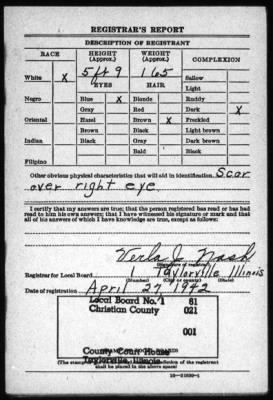 REGISTRAR'S REPORT
DESCRIPTION OF REGISTRANT
RACE HEIGHT (Approx.) WEIGHT (Approx.) COMPLEXION
5 ft 9 165
White X EYES HAIR Sallow
Light
Negro Blue X Blonde Ruddy
Gray Red Dark X
Oriental Hazel Brown X Freckled
Brown Black Light brown
Indian Black Gray Dark brown
Bald Black
Filipino
Other obvious physical characteristics that will aid in identification Scar
over right eye
I certify that my answers are true; that the person registered has read or has had
read to him his own answers; that I have witnessed his signature or mark and that
all of his answers of which I have knowledge are true, except as follows:
Verla J. Nash
(Signature of registrar)
Registrar for Local Board 1 Taylorville Illinois
(Number) (City or county) (State)
Date of registration April 27, 1942
Local Board No. 1 61
Christian County 021
001
County Court House
Taylorville, Illinois
shall be placed in the above space)